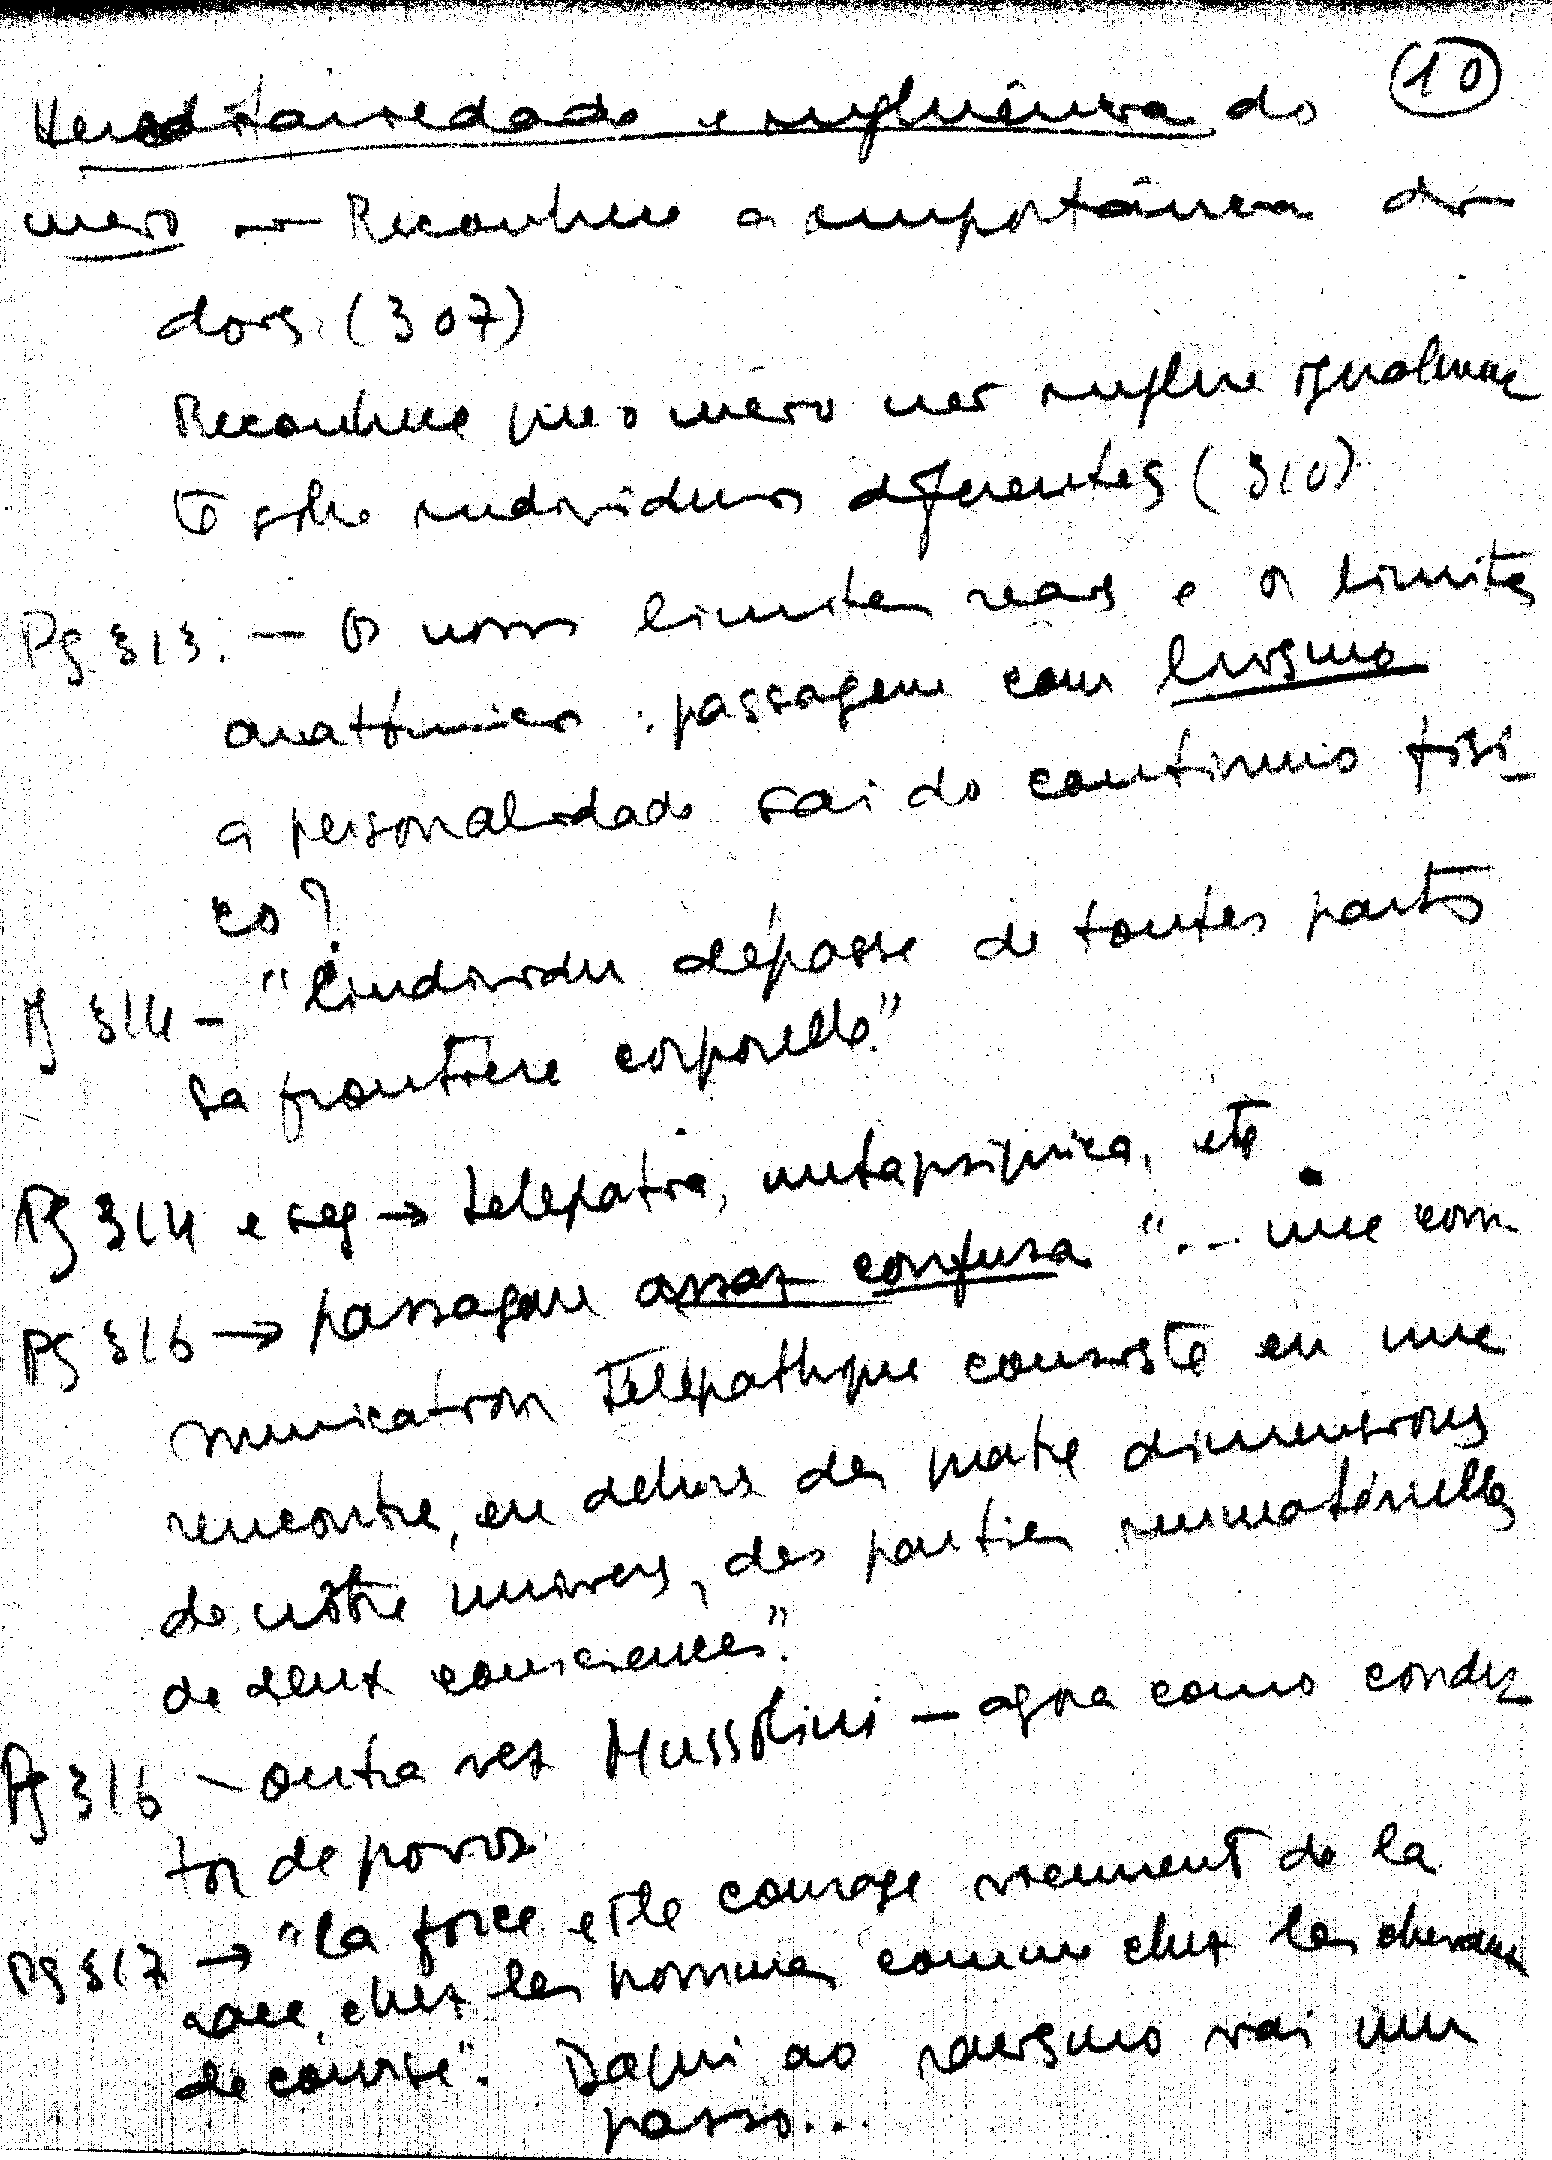 10
Hereditariedade e influência do
meio → Reconhece a importância dos
dois (307)
Reconhece que o meio não influe igualmen
te sobre individuos diferentes (310)
Pg 313. — Os nossos limites reais e os limites
anatómicos: passagem com lirismo
a personalidade sai do continuo fisi_
co?
Pg 314 – "L'individu dépasse de toutes parts
sa frontière corporelle."
Pg 314 e seg → telepatia, metapsiquica, etc
Pg 316 → passagem assaz confusa "... une com
munication télépathique consiste en une
rencontre, en dehors des quatre dimensions
de nôtre univers, des parties immatérielles
de deux consciences".
Pg 316 – outra vez Mussolini – agora como condu_
tor de povos.
Pg 317 → "la force et le courage viennent de la
race, chez les hommes comme chez les chevaux
de course". Daqui ao racismo vai um
passo...